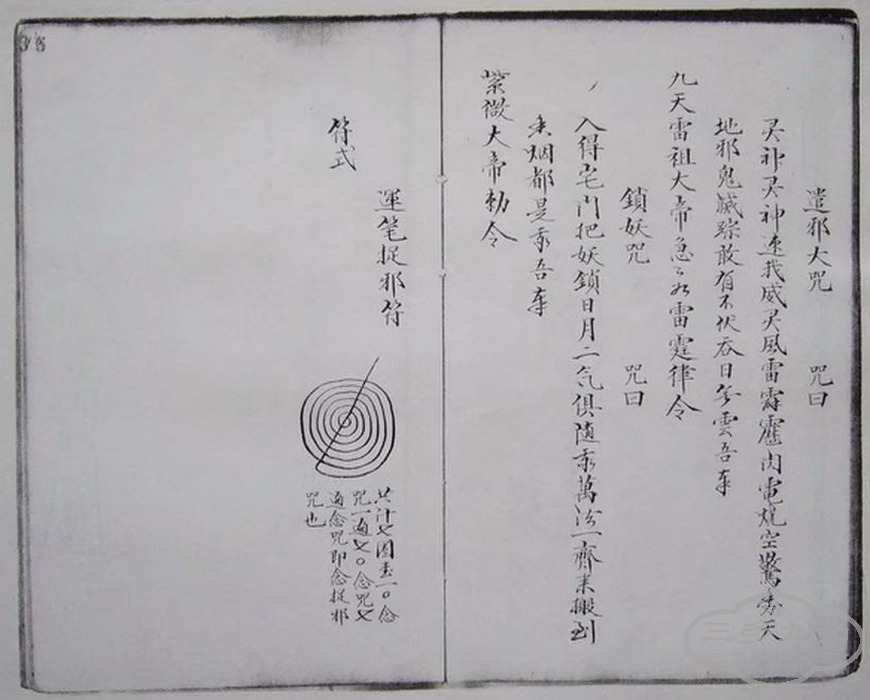 遣邪大咒 咒曰
灵神灵神速我威灵風雷霹靂閃電燒空驚
地邪鬼滅踪敢有不伏吞日 雲吾奉
九天雷祖大帝急急如雷霆律令
鎖妖咒 咒曰
入得宅門把妖鎖日月二气俱隨 萬法一齊来搬到
香烟都是 吾奉
紫微大帝勅令
符式
運笔捉邪符
共计七圈画一〇念
咒一遍七〇念咒七
遍念咒即念捉邪
咒也